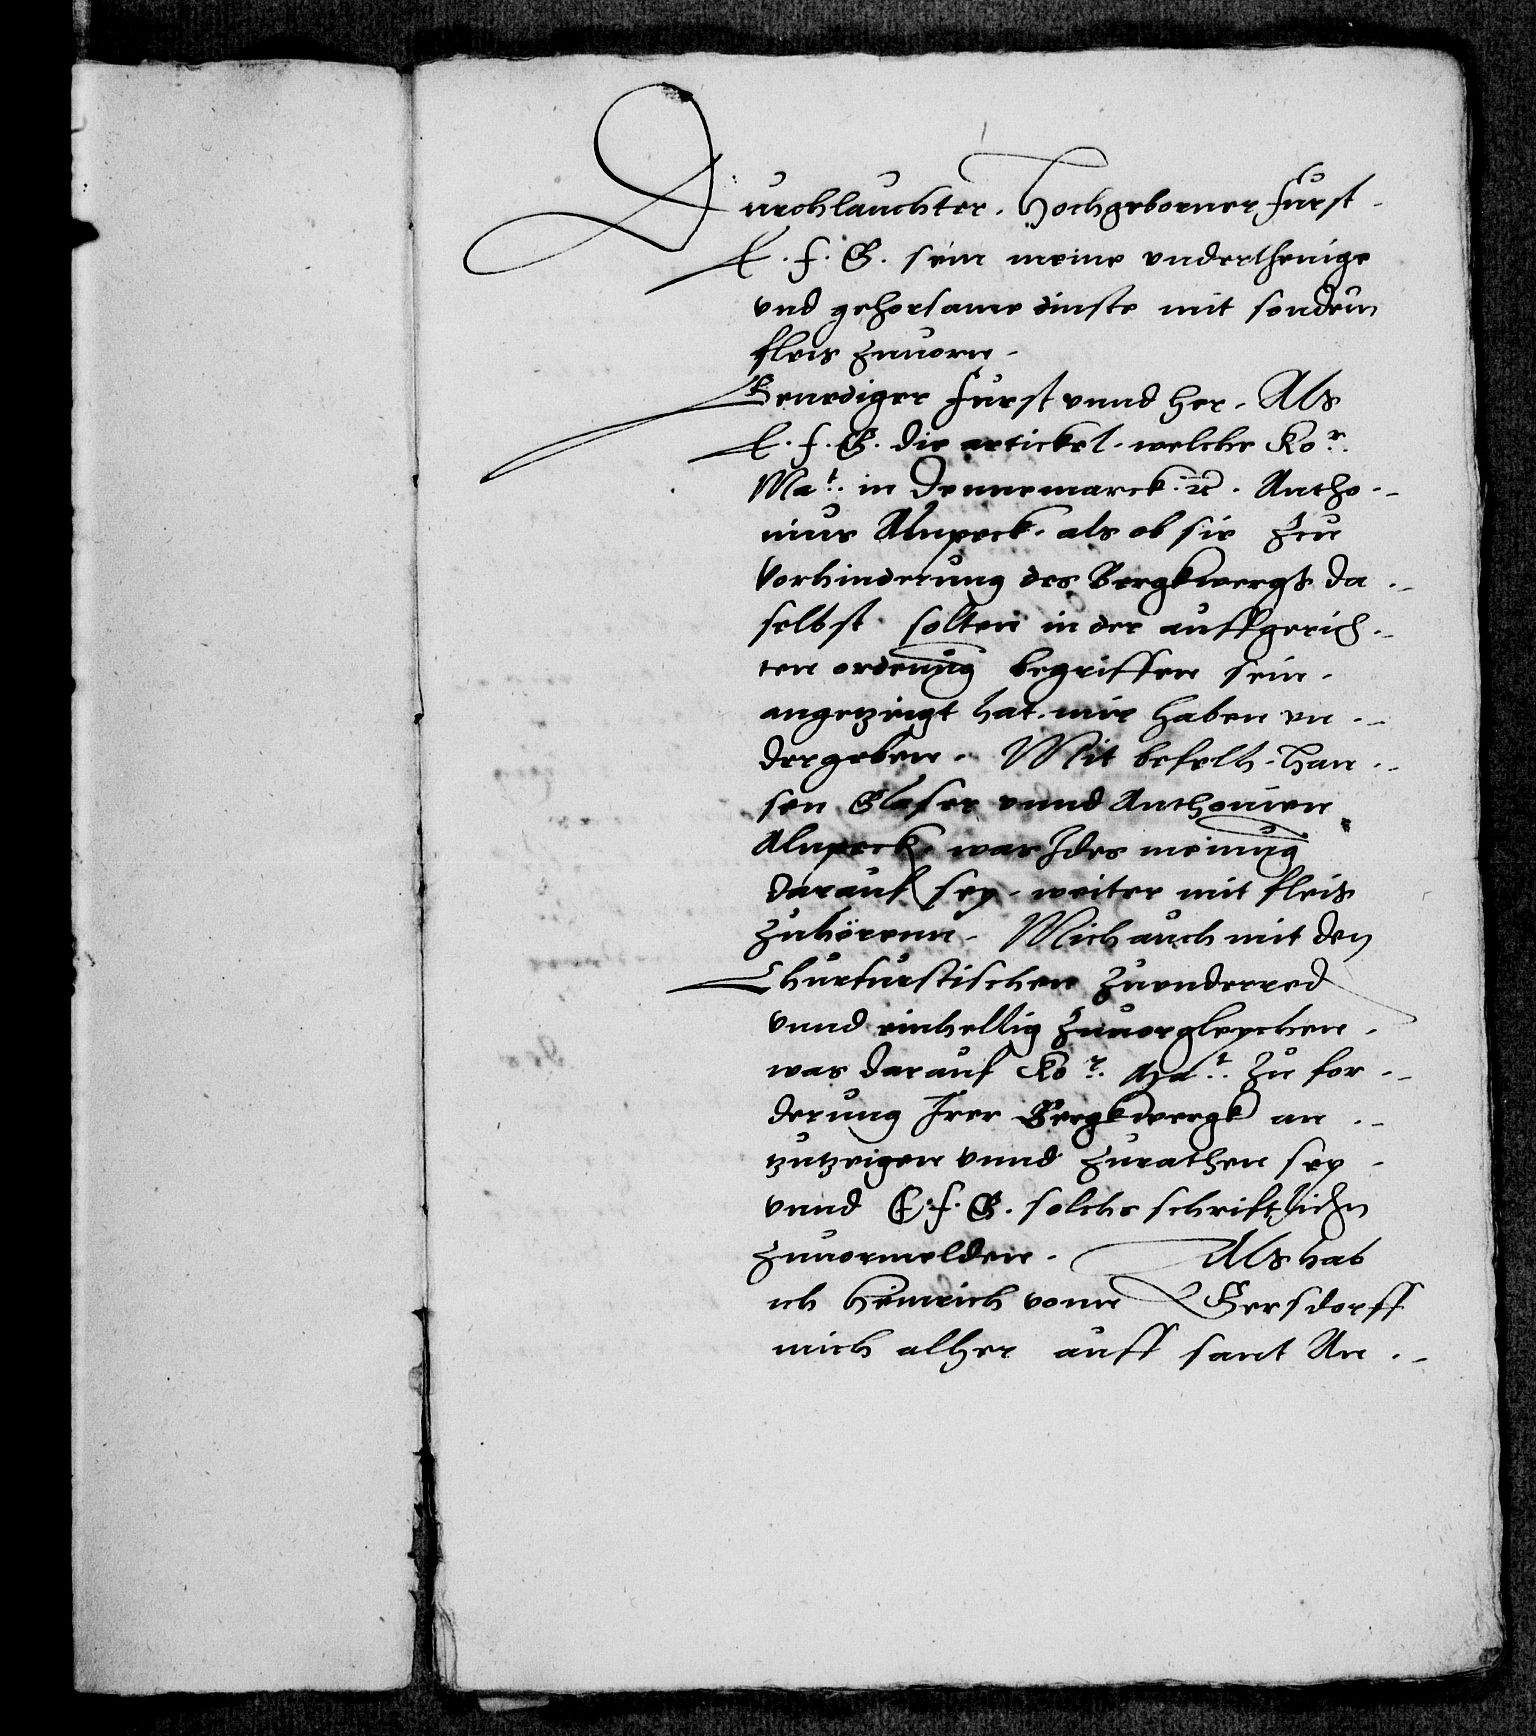 Durchlauchter. Hochgeborner Furst.
E. f. G. sein meine underthenige
vnd gehorsame dinste mit sondern
fleis zuuorn.
Genediger Furst vnnd her. Als
E. f. G. die artickel. welche Ko^r.
Ma^t. in Dennemarck. ꝛc. Antho-
nius Alnpeck. als ob sie Zcu
vorhinderung des Bergkwergks da-
selbst solten in der auffgerich-
ten ordenung begriffen sein.
angetzeigt hat. mir haben vn-
dergeben. Mit befelh. Han-
sen Glaser vnnd Anthonien
Alnpeck. was Ides meinung
darauf sey. weiter mit fleis
Zuhörenn. Mich auch mit den
Churfurstischen Zuunderred
vnnd einhellig Zuuorgleychen.
was darauf Ko^r. Ma^t. Zu for-
derung Irer Bergkwergk an-
tzutzeigen vnnd Zurathen sey.
vnnd E. f. G. solchs schriftlichn
Zuuormelden. Als hab
ich Heinrich vonn Gersdorff
mich alher auff sant An-